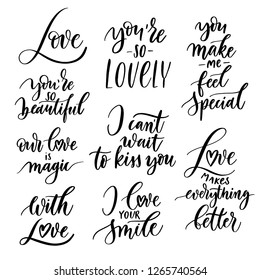 Love
you're
-SO-
LOVELY
you
make
-me-
feel
special
you're
SO
beautiful
our love
is
magic
I can't
wait
to kiss you
Love
MAKES
everything
better
with
Love
I love
YOUR
smile
shutterstock.com · 1265740564